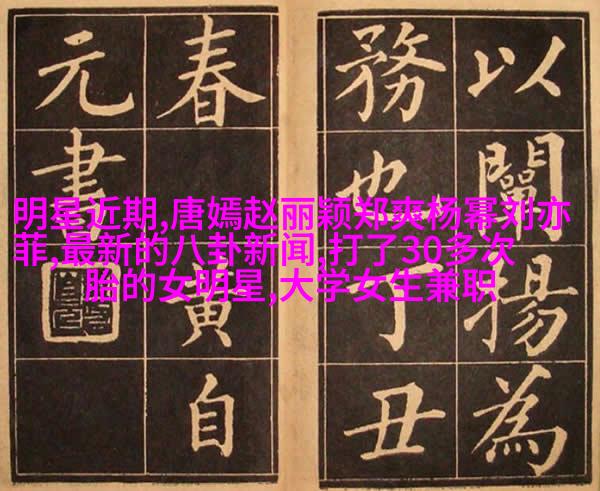 明星近期,唐嫣赵丽颖郑爽杨幂刘亦
菲,最新的八卦新闻,打了30多次
胎的女明星,大学女生兼职
以闡揚為
務也丁丑
春黄自
元書